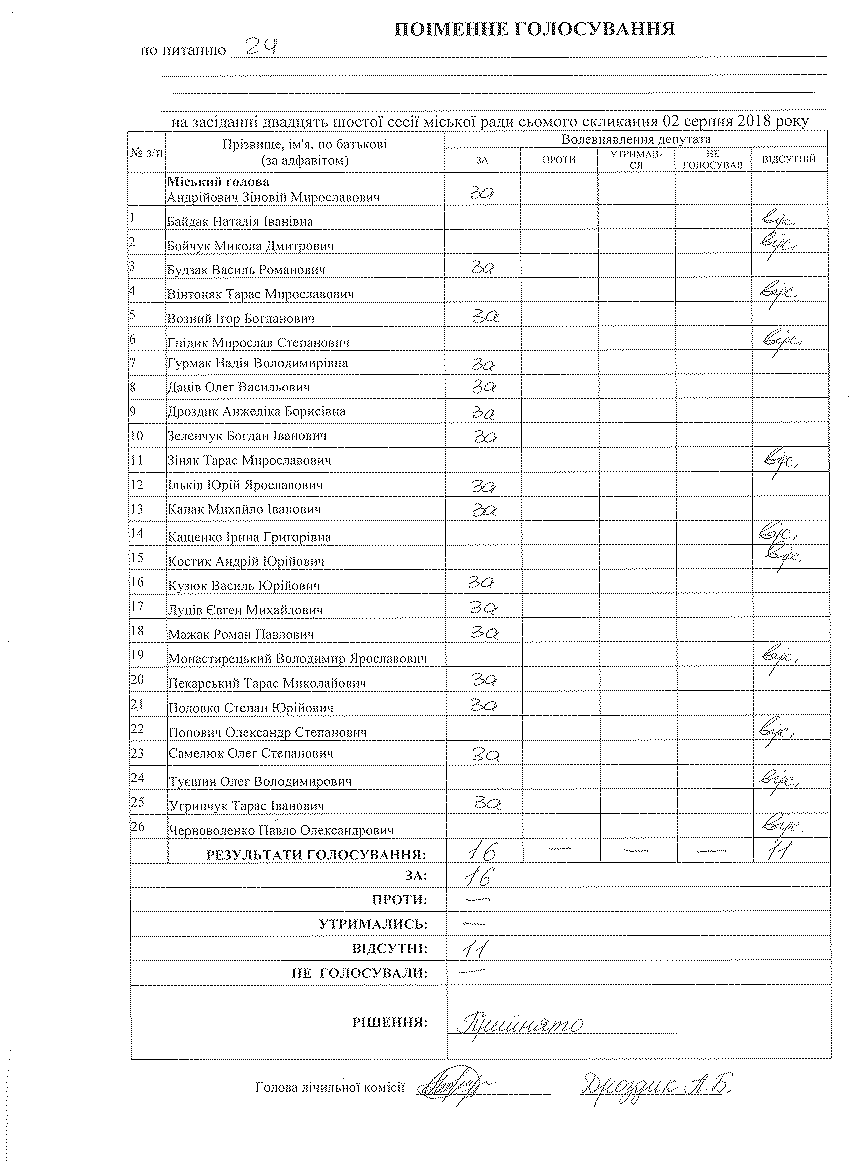 ПОІМЕННЕ ГОЛОСУВАННЯ
по питанню 24
на засіданні двадцять шостої сесії міської ради сьомого скликання 02 серпня 2018 року
№ з/п Прізвище, ім'я, по батькові (за алфавітом) Волевиявлення депутата
ЗА ПРОТИ УТРИМАВ-СЯ НЕ ГОЛОСУВАВ ВІДСУТНІЙ
Міський голова
Андрійович Зіновій Мирославович за
1 Байдак Наталія Іванівна відс.
2 Бойчук Микола Дмитрович відс.
3 Будзак Василь Романович за
4 Вінтоняк Тарас Мирославович відс.
5 Возний Ігор Богданович за
6 Гнідик Мирослав Степанович відс.
7 Гурмак Надія Володимирівна за
8 Даців Олег Васильович за
9 Дроздик Анжеліка Борисівна за
10 Зеленчук Богдан Іванович за
11 Зіняк Тарас Мирославович відс.
12 Ільків Юрій Ярославович за
13 Капак Михайло Іванович за
14 Кащенко Ірина Григорівна відс.
15 Костик Андрій Юрійович відс.
16 Кузюк Василь Юрійович за
17 Луців Євген Михайлович за
18 Мажак Роман Павлович за
19 Монастирецький Володимир Ярославович відс.
20 Пекарський Тарас Миколайович за
21 Половко Степан Юрійович за
22 Попович Олександр Степанович відс.
23 Самелюк Олег Степанович за
24 Туєшин Олег Володимирович відс.
25 Угринчук Тарас Іванович за
26 Черноволенко Павло Олександрович відс.
РЕЗУЛЬТАТИ ГОЛОСУВАННЯ: 16 — — — 11
ЗА: 16
ПРОТИ: —
УТРИМАЛИСЬ: —
ВІДСУТНІ: 11
НЕ ГОЛОСУВАЛИ: —
РІШЕННЯ: Прийнято
Голова лічильної комісії Дроздик А.Б.